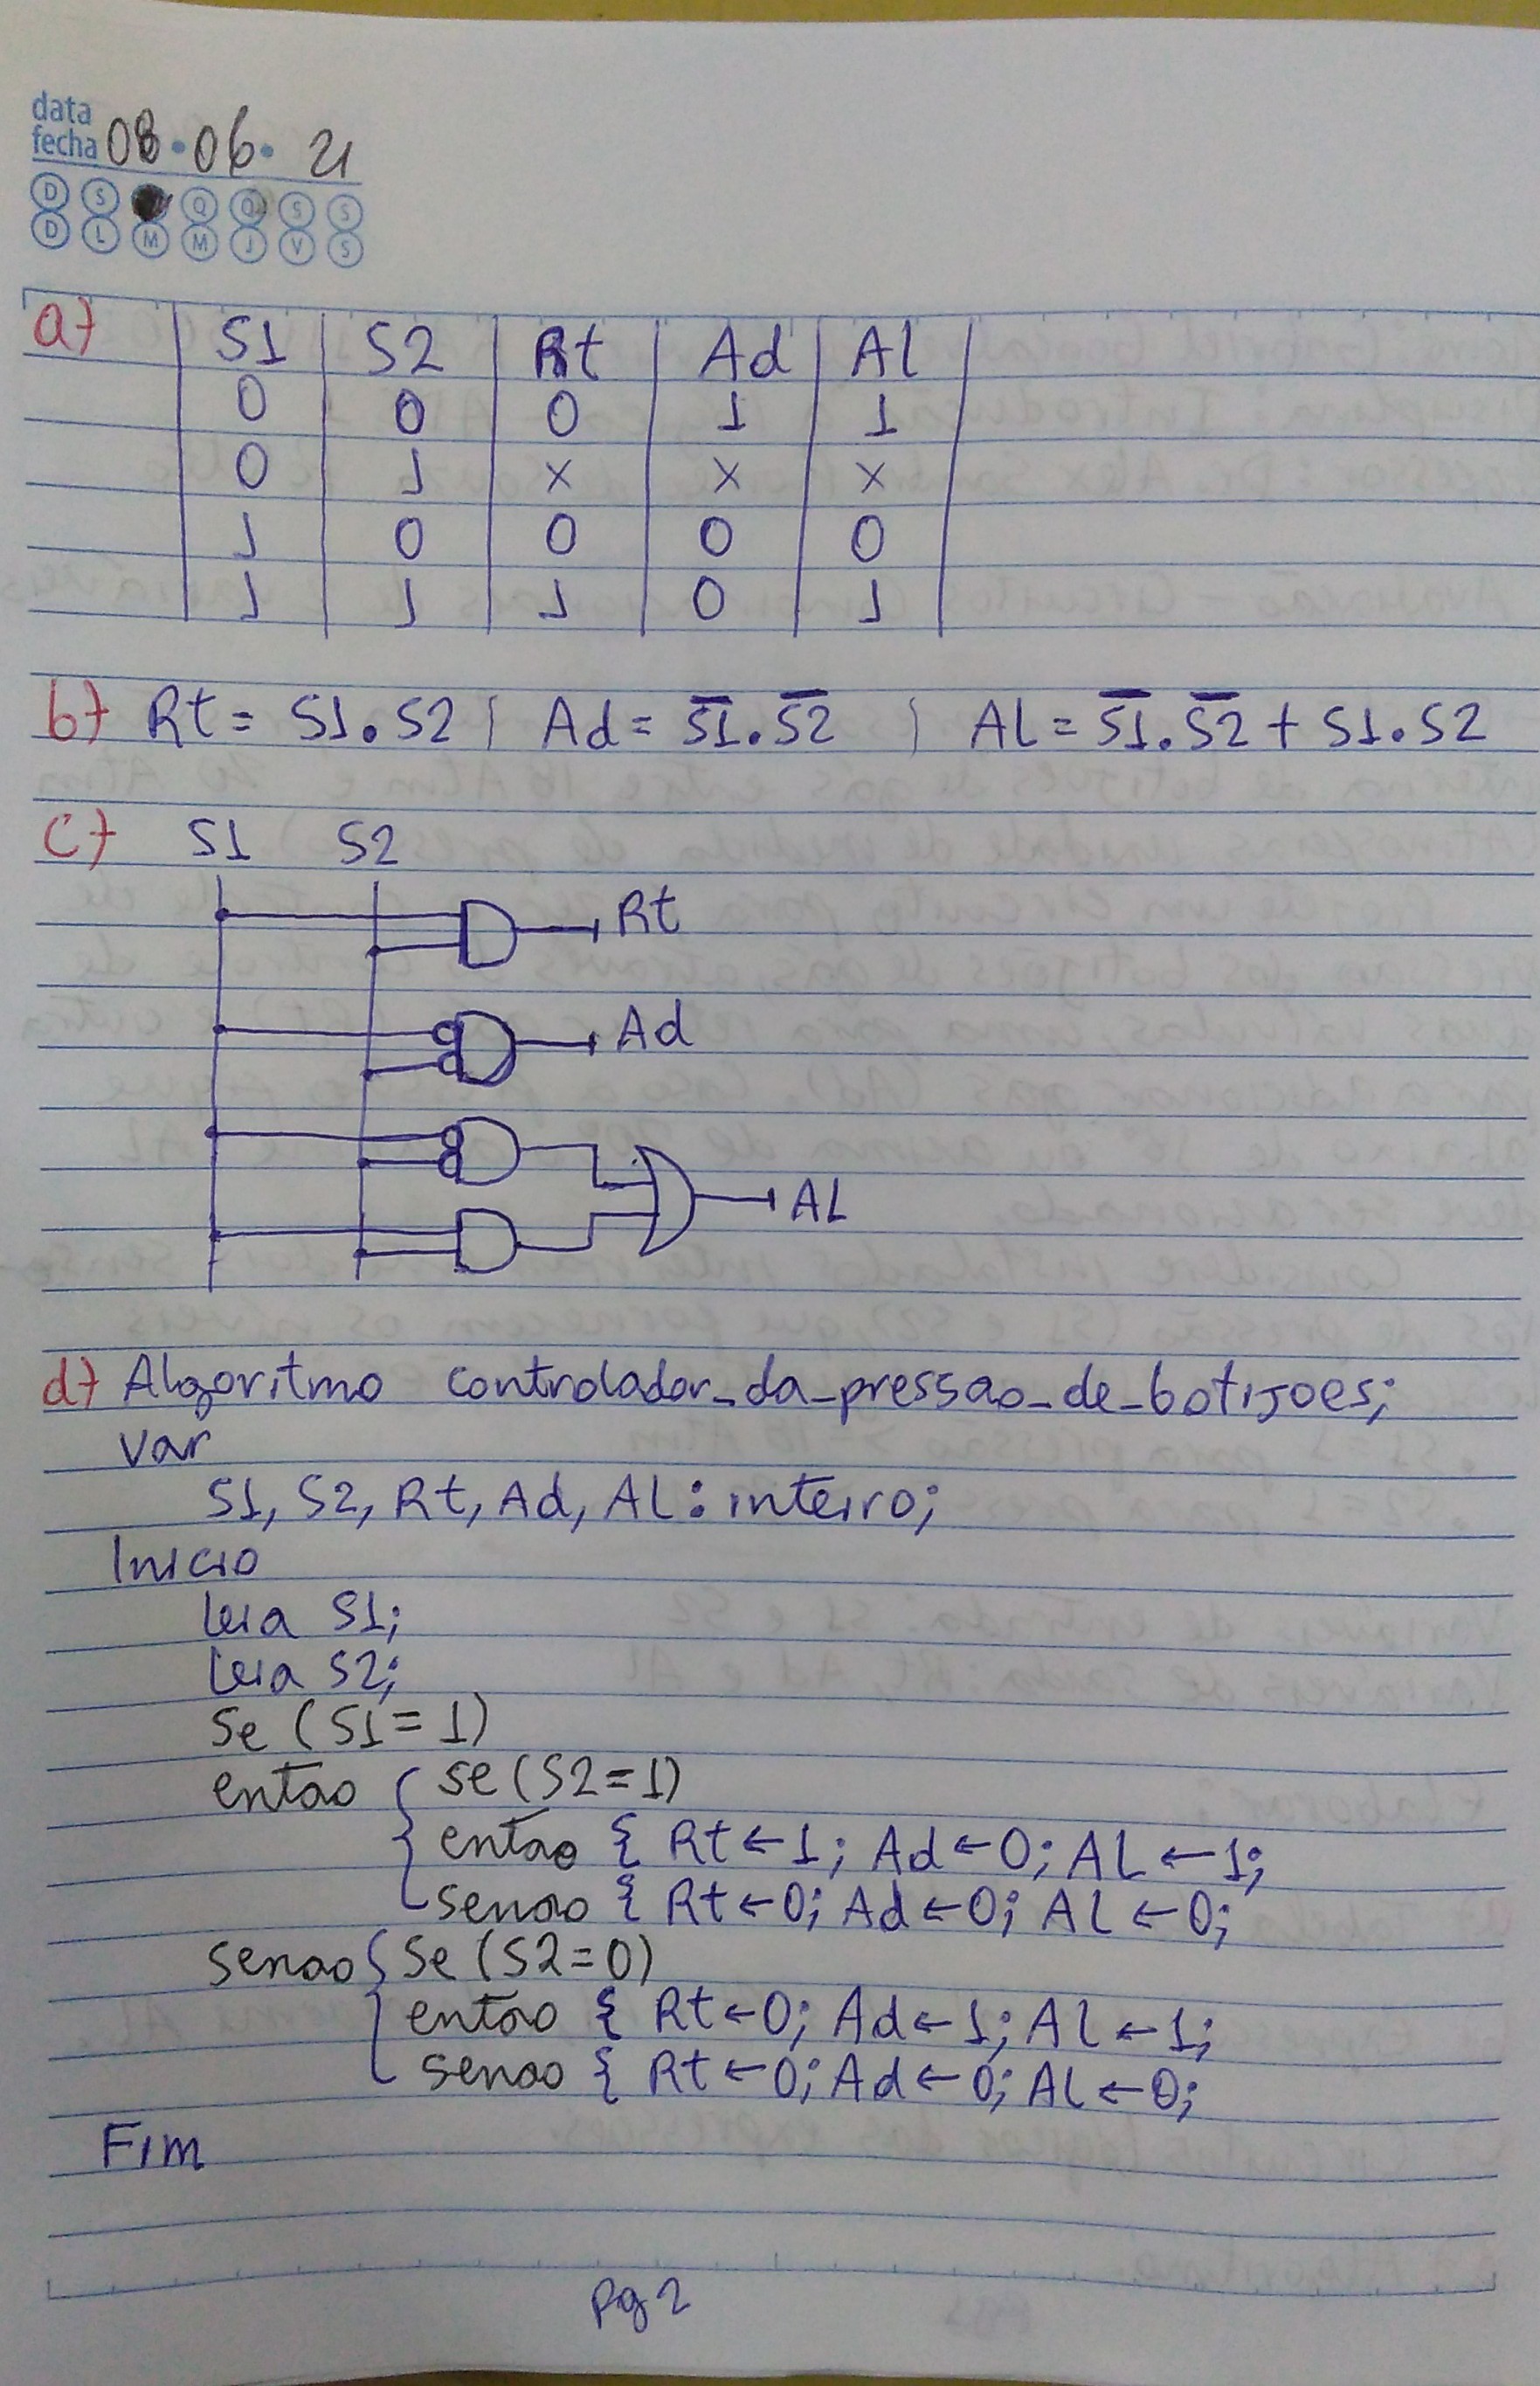 data
fecha 08 • 06 • 21
D S Q Q S S
D L M M J V S
a) S1 S2 Rt Ad Al
0 0 0 1 1
0 1 x x x
1 0 0 0 0
1 1 1 0 1
b) Rt = S1.S2 | Ad = S̅1̅.S̅2̅ | AL = S̅1̅.S̅2̅ + S1.S2
c) S1 S2
Rt
Ad
AL
d) Algoritmo controlador_da_pressao_de_botijoes;
var
S1, S2, Rt, Ad, AL: inteiro;
Inicio
leia S1;
leia S2;
se (S1 = 1)
entao { se (S2 = 1)
entao { Rt ← 1; Ad ← 0; AL ← 1;
senao { Rt ← 0; Ad ← 0; AL ← 0;
senao { se (S2 = 0)
entao { Rt ← 0; Ad ← 1; AL ← 1;
senao { Rt ← 0; Ad ← 0; AL ← 0;
Fim
pg 2